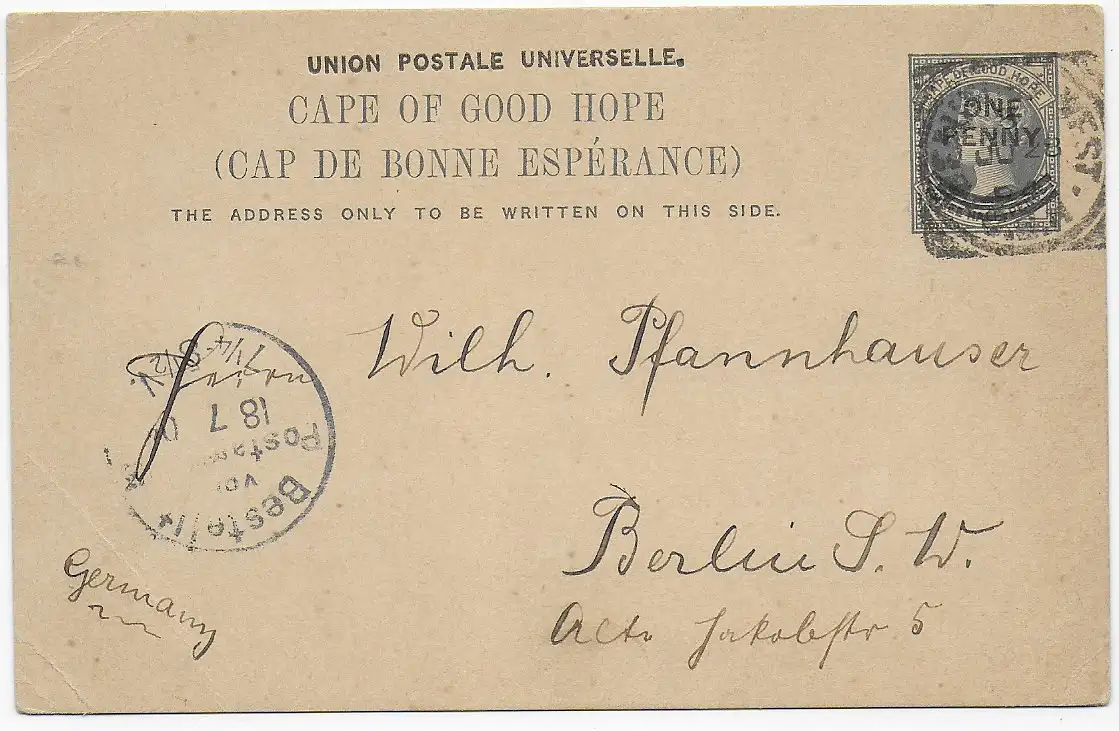 UNION POSTALE UNIVERSELLE.
CAPE OF GOOD HOPE
(CAP DE BONNE ESPÉRANCE)
THE ADDRESS ONLY TO BE WRITTEN ON THIS SIDE.
CAPE OF GOOD HOPE
ONE
PENNY
ST.
JU 28
Herrn Wilh. Pfannhauser
Berlin S. W.
Alte Jakobstr 5
Germany
Bestellt
vom
Postamt
18 7
7¼-8½V.